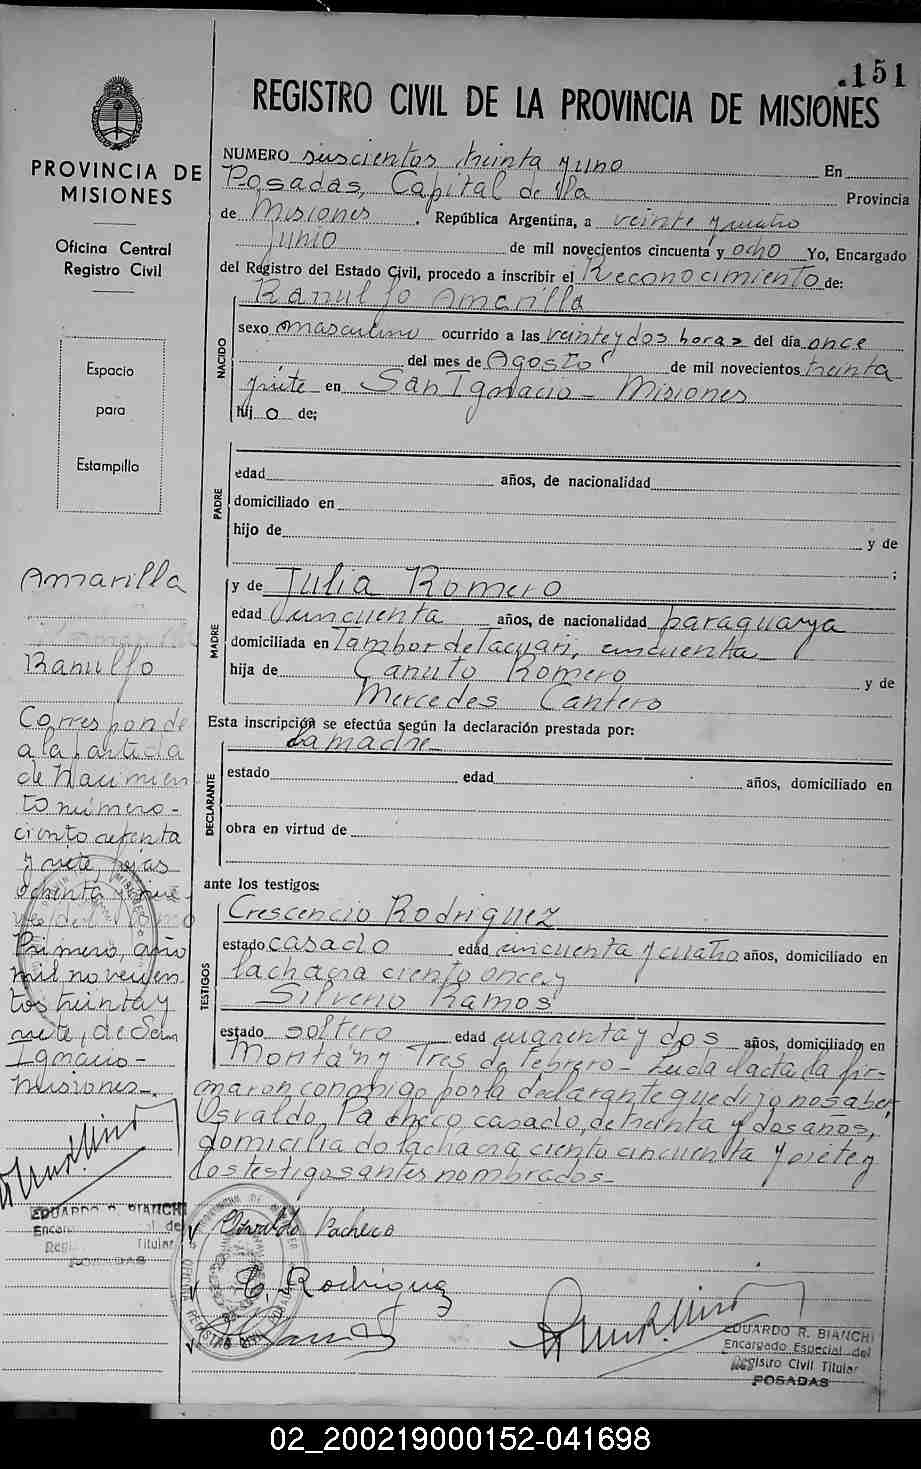 151
REGISTRO CIVIL DE LA PROVINCIA DE MISIONES
PROVINCIA DE
MISIONES
Oficina Central
Registro Civil
Espacio
para
Estampillo
Amarilla
Ranulfo
Corresponde
a la partida
de nacimien
to número-
ciento setenta
y siete, fojas
ochenta y nue-
ve, del Tomo
Primero, año
mil noveci en
tos treinta y
siete, de San
Ignacio-
Misiones-.
EDUARDO R. BIANCHI
Titular
POSADAS
NUMERO suscientos treinta y uno En
Posadas, Capital de la Provincia
de Misiones, República Argentina, a veinte y cuatro
junio de mil novecientos cincuenta y ocho Yo, Encargado
del Registro del Estado Civil, procedo a inscribir el Reconocimiento de:
Ranulfo Amarilla
NACIDO
sexo masculino ocurrido a las veinte y dos horas del día once
del mes de Agosto de mil novecientos treinta
y siete en San Ignacio - Misiones
hijo de;
PADRE
edad años, de nacionalidad
domiciliado en
hijo de y de
;
MADRE
y de Julia Romero
edad cincuenta años, de nacionalidad paraguaya
domiciliada en Tambor de Tacuari, cincuenta
hija de Canuto Romero y de
Mercedes Cantero
Esta inscripción se efectúa según la declaración prestada por:
La madre
DECLARANTE
estado edad años, domiciliado en
obra en virtud de
ante los testigos:
TESTIGOS
Crescencio Rodriguez
estado casado edad cincuenta y cuatro años, domiciliado en
la chacra ciento once y
Silverio Ramos
estado soltero edad cuarenta y dos años, domiciliado en
Montan y Tres de Febrero- Leida el acta la fir-
maron conmigo por la declarante que dijo no saber
Osvaldo Pacheco casado, de treinta y dos años,
domiciliado la chacra ciento cincuenta y siete y
los testigos antes nombrados-
Osvaldo Pacheco
C. Rodriguez
EDUARDO R. BIANCHI
Encargado Especial del
Registro Civil Titular
POSADAS
02_200219000152-041698